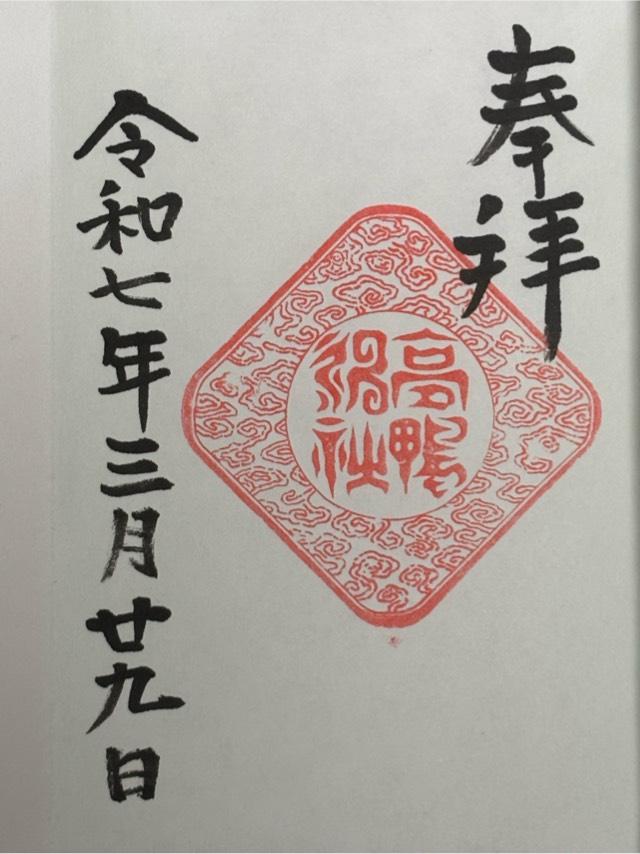 奉拝
高鴨
神社
令和七年三月廿九日